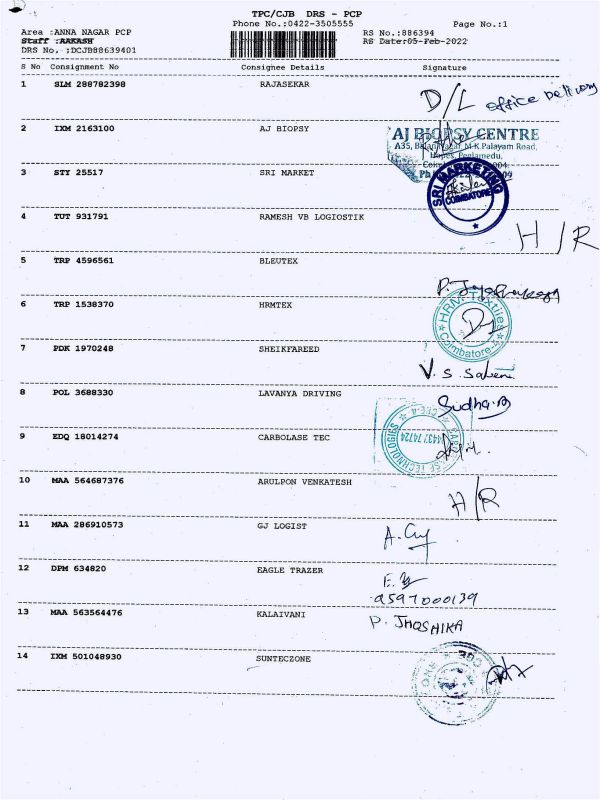 TPC/CJB DRS - PCP
Phone No.:0422-3505555
Page No.:1
Area :ANNA NAGAR PCP
RS No.:886394
Staff :AAKASH
RS Date:05-Feb-2022
DRS No. :DCJB88639401
S No Consignment No Consignee Details Signature
1 SLM 288782398 RAJASEKAR
D/L office Delivery
2 IXM 2163100 AJ BIOPSY
AJ BIOPSY CENTRE
M.K.Palayam Road,
Peelamedu,
3 STY 25517 SRI MARKET
SRI MARKETING
COIMBATORE
4 TUT 931791 RAMESH VB LOGIOSTIK
H/R
5 TRP 4596561 BLEUTEX
6 TRP 1538370 HRMTEX
HRM Textiles
Coimbatore
7 PDK 1970248 SHEIKFAREED
V.S.
8 POL 3688330 LAVANYA DRIVING
Sudha.B
9 EDQ 18014274 CARBOLASE TEC
10 MAA 564687376 ARULPON VENKATESH
H/R
11 MAA 286910573 GJ LOGIST
12 DPM 634820 EAGLE TRAZER
9597000139
13 MAA 563564476 KALAIVANI
P. JHOSHIKA
14 IXM 501048930 SUNTECZONE